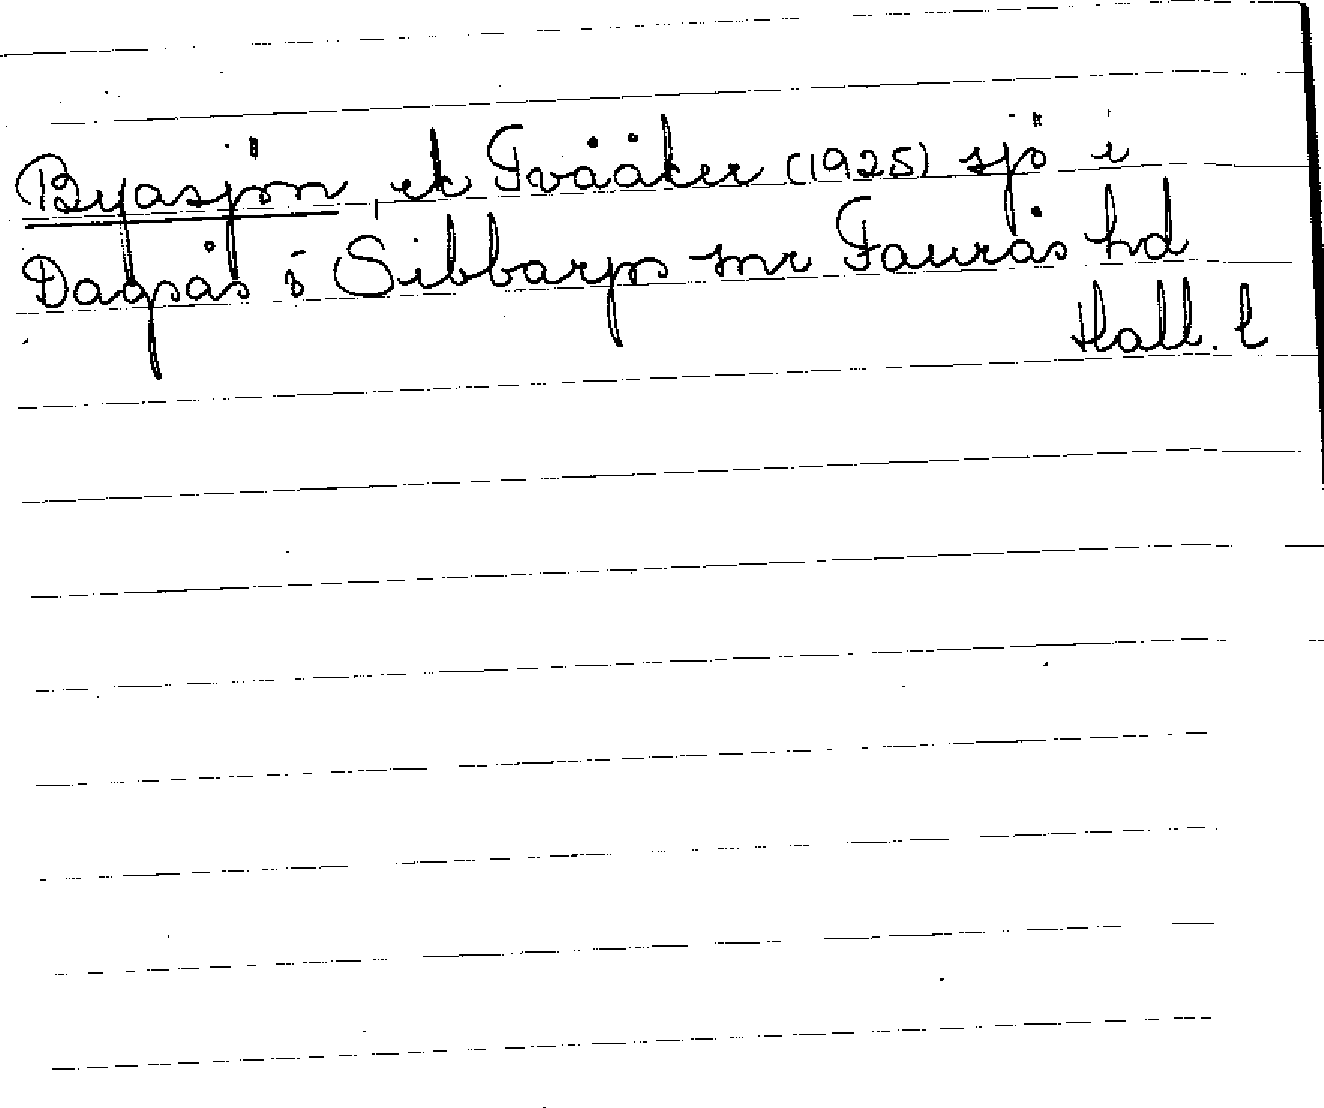 Byasjön, ek Tvååker (1925) sjö i
Dagsås i Sibbarps snr Faurås hd
Hall. l